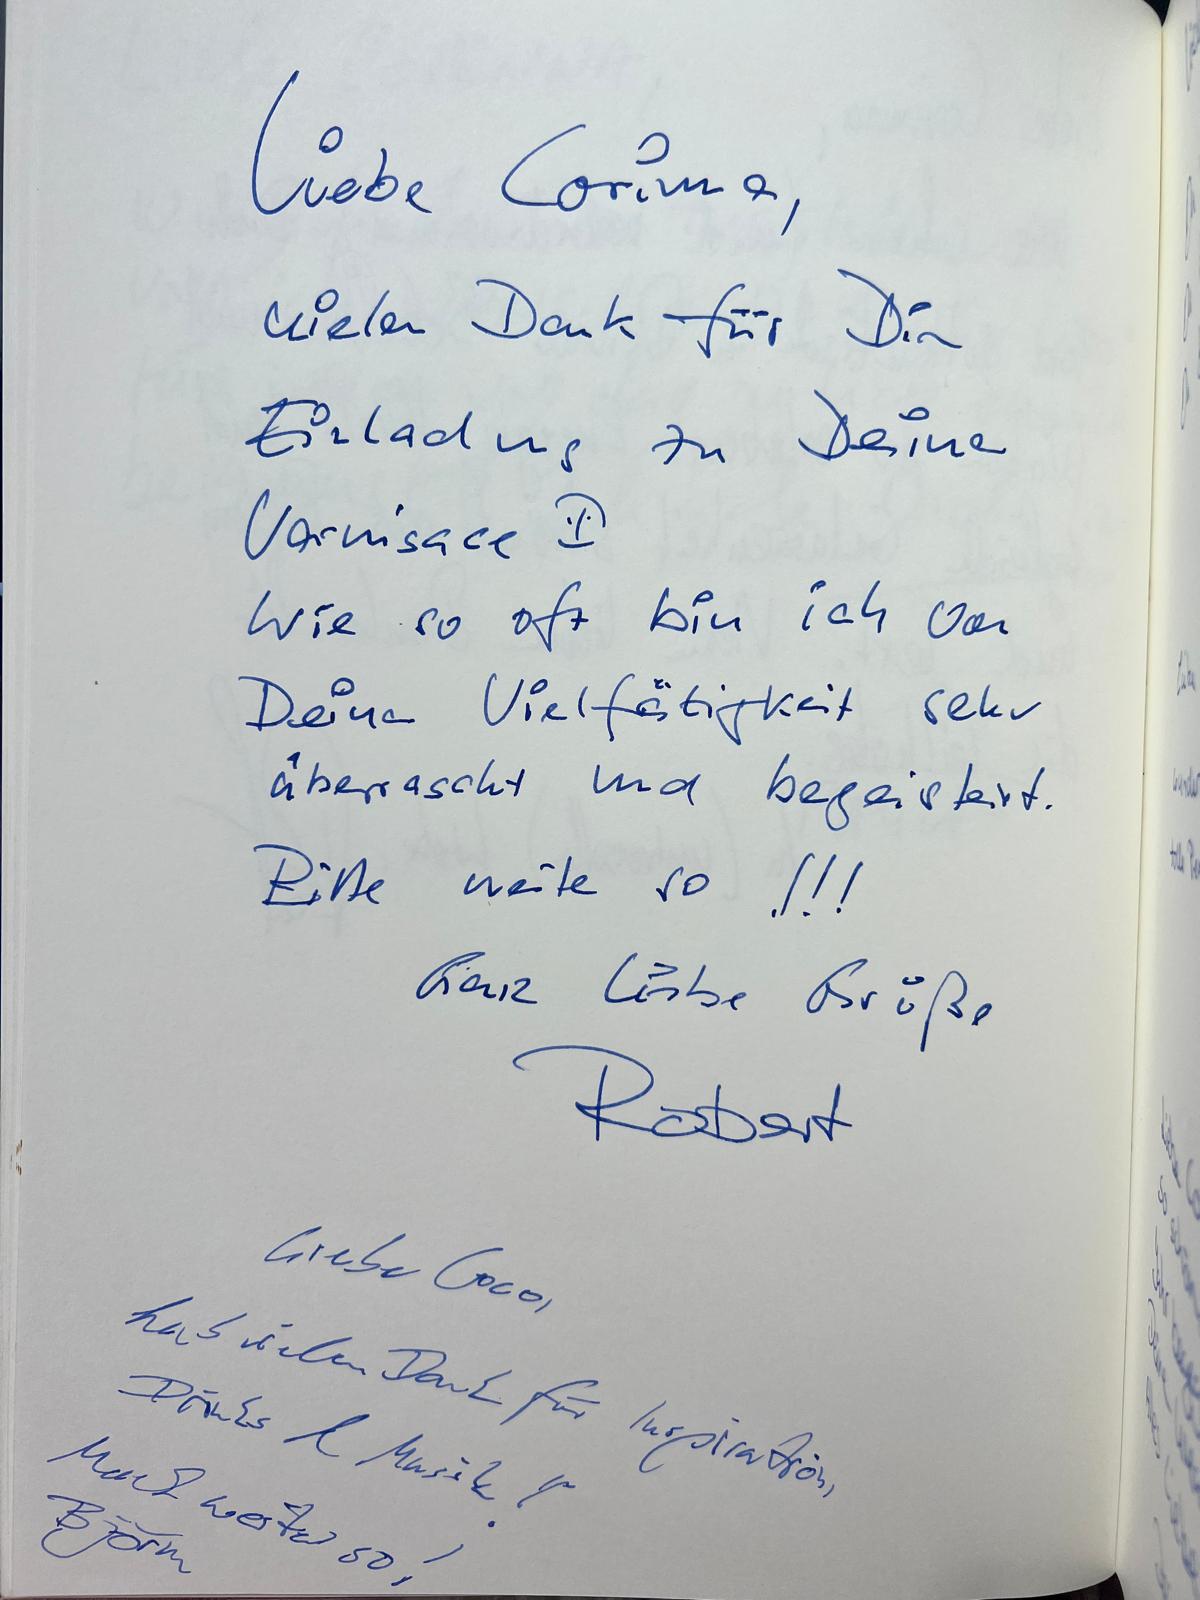 Liebe Corinna,
vielen Dank für Die
Einladung zu Deiner
Vernisace II
Wie so oft bin ich von
Deiner Vielfätigkeit sehr
überrascht und begeistert.
Bitte weite so !!!
Ganz Liebe Grüße
Robert
Liebe Coco,
hab vielen Dank für Inspiration,
Drinks & Musik!
Mach weiter so!
Björn